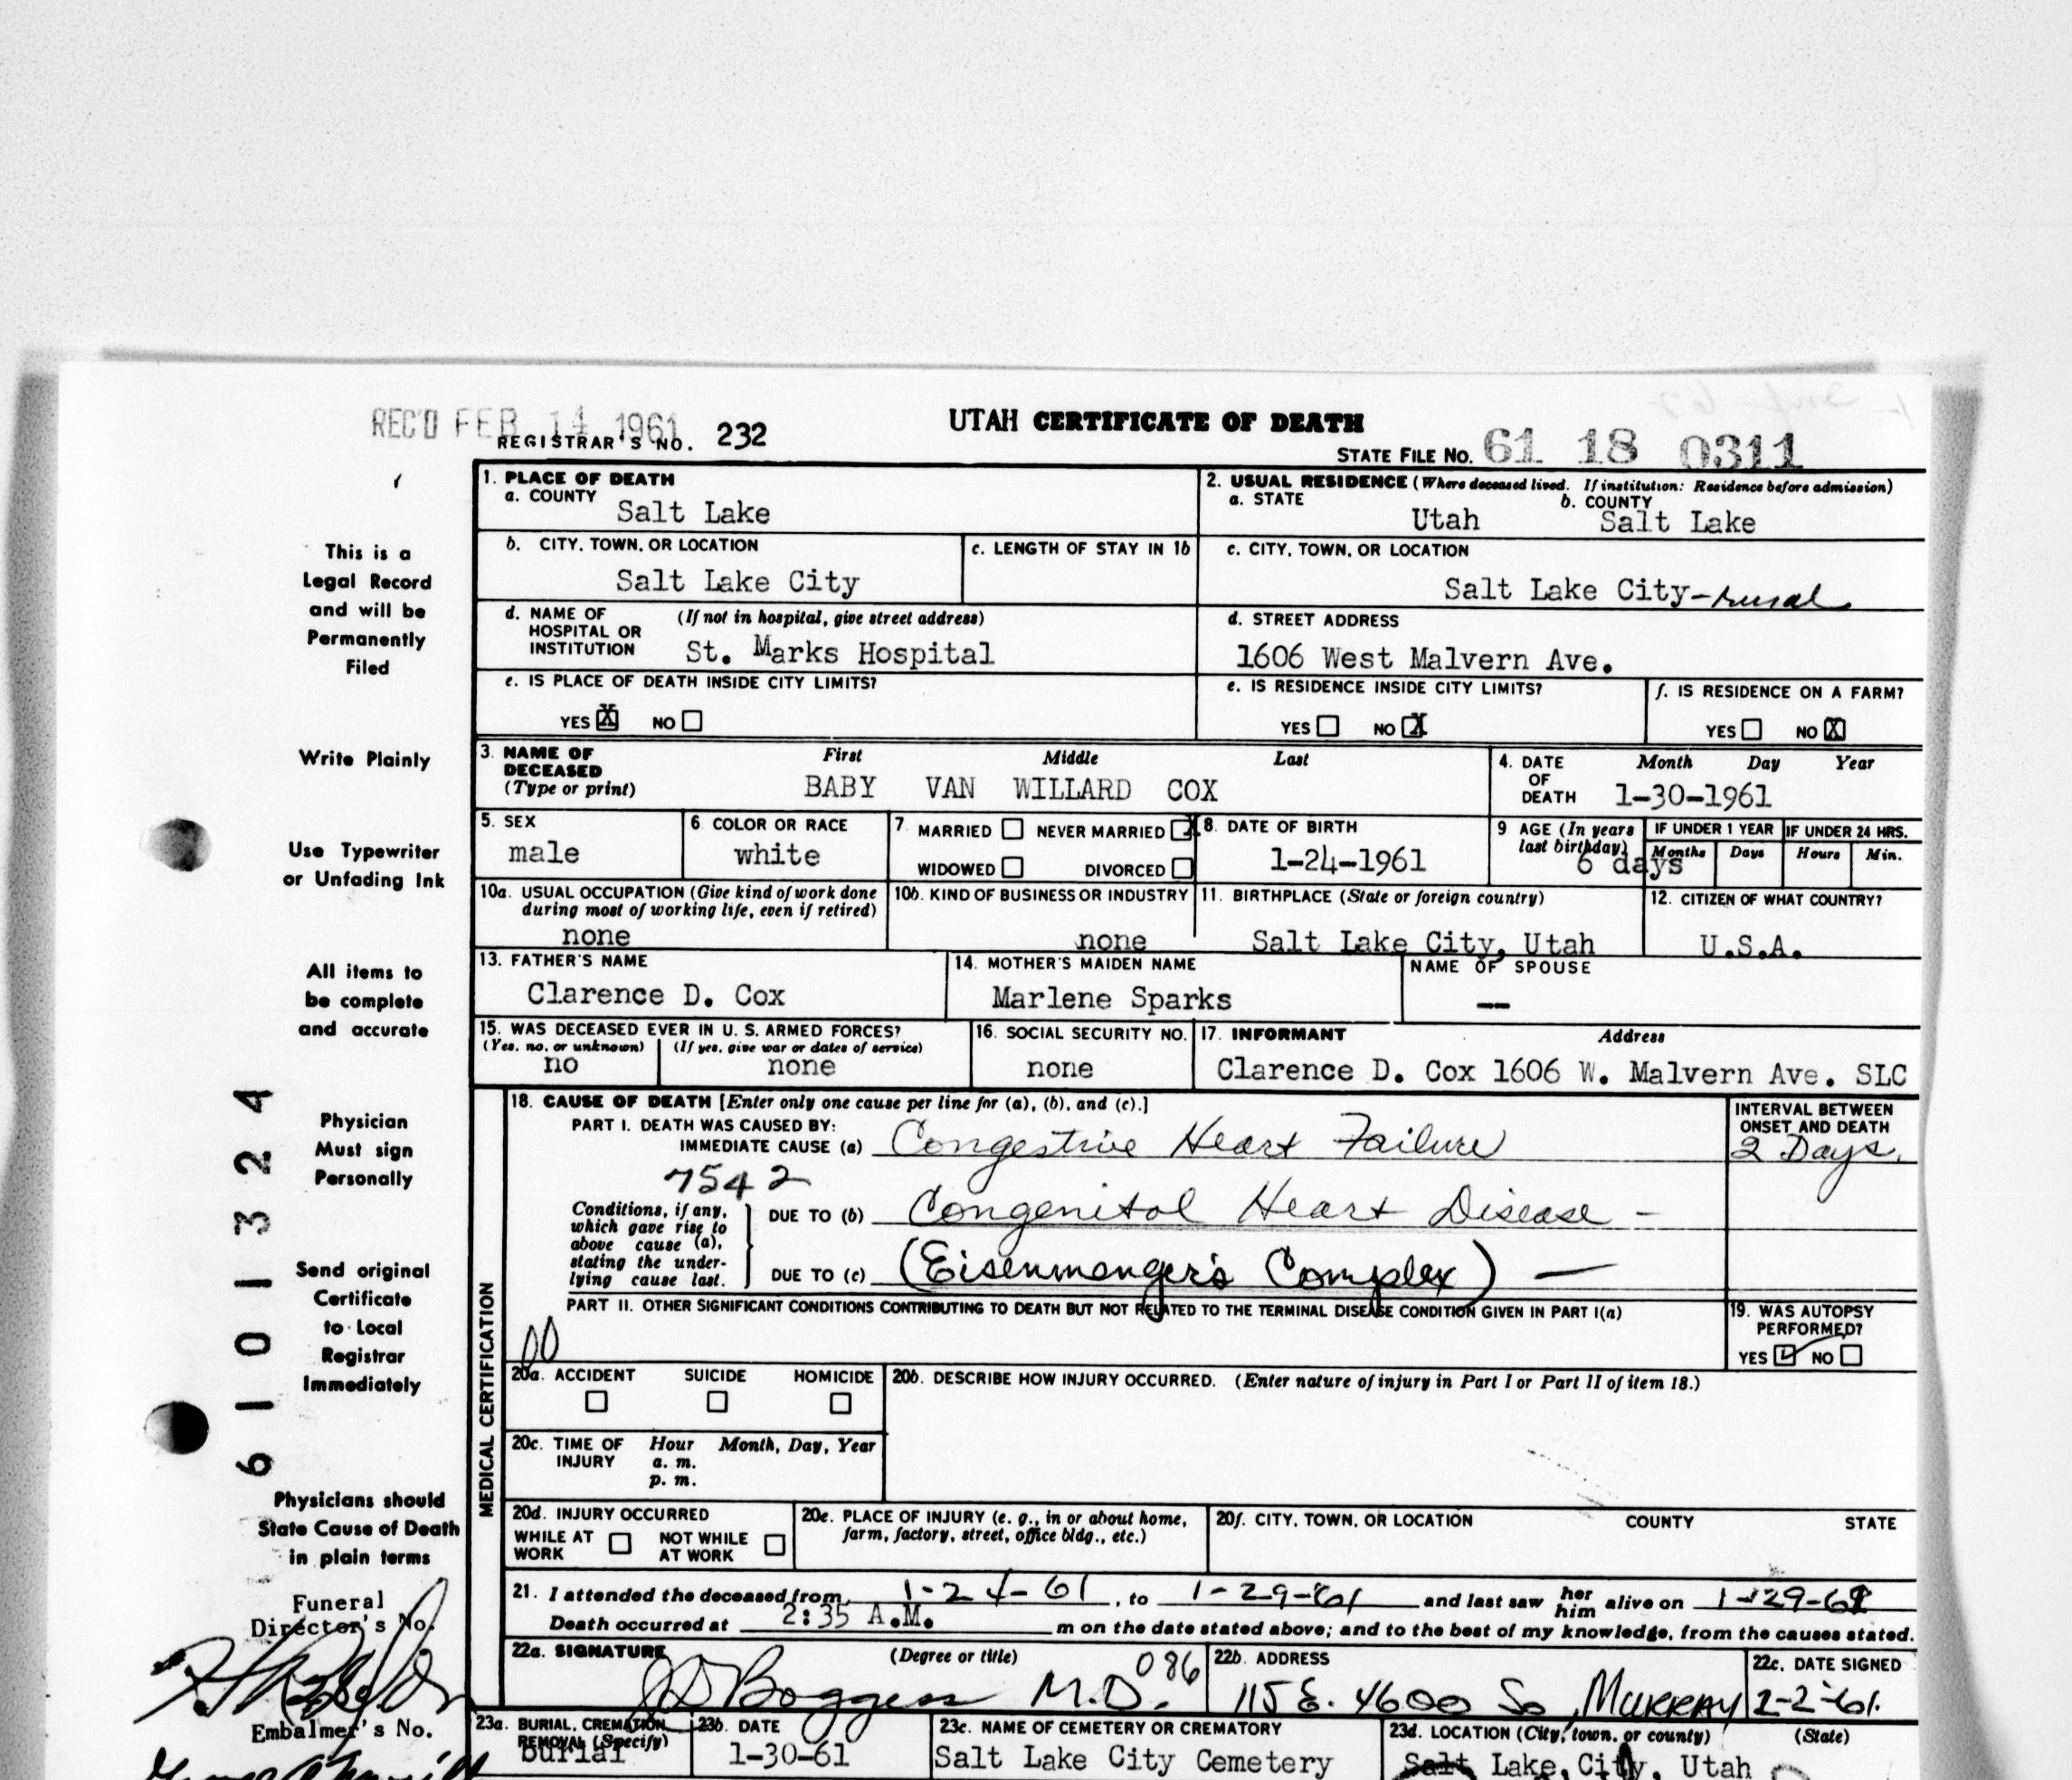 REC'D FEB 14 1961
REGISTRAR'S NO. 232
UTAH CERTIFICATE OF DEATH
STATE FILE No. 61 18 0311
This is a
Legal Record
and will be
Permanently
Filed
Write Plainly
Use Typewriter
or Unfading Ink
All items to
be complete
and accurate
Physician
Must sign
Personally
6101324
Send original
Certificate
to Local
Registrar
Immediately
Physicians should
State Cause of Death
in plain terms
Funeral
Director's No.
Embalmer's No.
1. PLACE OF DEATH
a. COUNTY
Salt Lake
2. USUAL RESIDENCE (Where deceased lived. If institution: Residence before admission)
a. STATE b. COUNTY
Utah Salt Lake
b. CITY, TOWN, OR LOCATION
Salt Lake City
c. LENGTH OF STAY IN 1b
c. CITY, TOWN, OR LOCATION
Salt Lake City-rural
d. NAME OF (If not in hospital, give street address)
HOSPITAL OR
INSTITUTION St. Marks Hospital
d. STREET ADDRESS
1606 West Malvern Ave.
e. IS PLACE OF DEATH INSIDE CITY LIMITS?
YES X NO
e. IS RESIDENCE INSIDE CITY LIMITS?
YES NO X
f. IS RESIDENCE ON A FARM?
YES NO X
3. NAME OF DECEASED (Type or print)
First Middle Last
BABY VAN WILLARD COX
4. DATE OF DEATH
Month Day Year
1-30-1961
5. SEX
male
6. COLOR OR RACE
white
7. MARRIED NEVER MARRIED X
WIDOWED DIVORCED
8. DATE OF BIRTH
1-24-1961
9 AGE (In years
last birthday)
6 days
IF UNDER 1 YEAR IF UNDER 24 HRS.
Months Days Hours Min.
10a. USUAL OCCUPATION (Give kind of work done
during most of working life, even if retired)
none
10b. KIND OF BUSINESS OR INDUSTRY
none
11. BIRTHPLACE (State or foreign country)
Salt Lake City, Utah
12. CITIZEN OF WHAT COUNTRY?
U.S.A.
13. FATHER'S NAME
Clarence D. Cox
14. MOTHER'S MAIDEN NAME
Marlene Sparks
NAME OF SPOUSE
—
15. WAS DECEASED EVER IN U. S. ARMED FORCES?
(Yes, no, or unknown) (If yes, give war or dates of service)
no none
16. SOCIAL SECURITY NO.
none
17. INFORMANT Address
Clarence D. Cox 1606 W. Malvern Ave. SLC
MEDICAL CERTIFICATION
18. CAUSE OF DEATH [Enter only one cause per line for (a), (b), and (c).]
PART I. DEATH WAS CAUSED BY:
IMMEDIATE CAUSE (a) Congestive Heart Failure
INTERVAL BETWEEN
ONSET AND DEATH
2 Days.
7542
Conditions, if any,
which gave rise to
above cause (a),
stating the under-
lying cause last.
DUE TO (b) Congenital Heart Disease -
DUE TO (c) (Eisenmenger's Complex) —
PART II. OTHER SIGNIFICANT CONDITIONS CONTRIBUTING TO DEATH BUT NOT RELATED TO THE TERMINAL DISEASE CONDITION GIVEN IN PART I(a)
00
19. WAS AUTOPSY
PERFORMED?
YES ✓ NO
20a. ACCIDENT SUICIDE HOMICIDE
20b. DESCRIBE HOW INJURY OCCURRED. (Enter nature of injury in Part I or Part II of item 18.)
20c. TIME OF INJURY
Hour Month, Day, Year
a. m.
p. m.
20d. INJURY OCCURRED
WHILE AT WORK NOT WHILE AT WORK
20e. PLACE OF INJURY (e. g., in or about home,
farm, factory, street, office bldg., etc.)
20f. CITY, TOWN, OR LOCATION COUNTY STATE
21. I attended the deceased from 1-24-61, to 1-29-61 and last saw her him alive on 1-29-61
Death occurred at 2:35 A.M. m on the date stated above; and to the best of my knowledge, from the causes stated.
22a. SIGNATURE (Degree or title)
Boggess M.D. 086
22b. ADDRESS
115 E. 4600 So, Murray
22c. DATE SIGNED
2-2-61.
23a. BURIAL, CREMATION,
REMOVAL (Specify)
burial
23b. DATE
1-30-61
23c. NAME OF CEMETERY OR CREMATORY
Salt Lake City Cemetery
23d. LOCATION (City, town, or county) (State)
Salt Lake City, Utah